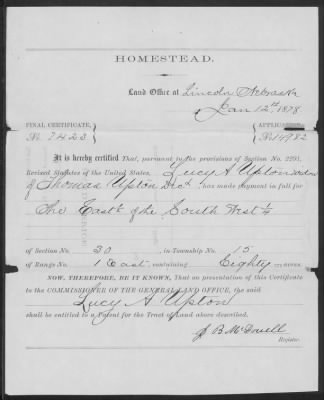 HOMESTEAD.
Land Office at Lincoln Nebraska
Jan 12th 1878.
FINAL CERTIFICATE,
No. 7423
APPLICATION,
No. 14982
It is hereby certified That, pursuant to the provisions of Section No. 2291,
Revised Statutes of the United States, Lucy A Upton widow
of Thomas Upton Dec'd has made payment in full for
the East ½ of the South West ¼
of Section No. 30 in Township No. 15
of Range No. 1 East containing Eighty acres.
NOW, THEREFORE, BE IT KNOWN, That on presentation of this Certificate
to the COMMISSIONER OF THE GENERAL LAND OFFICE, the said
Lucy A Upton
shall be entitled to a Patent for the Tract of Land above described.
J B McDowell
Register.